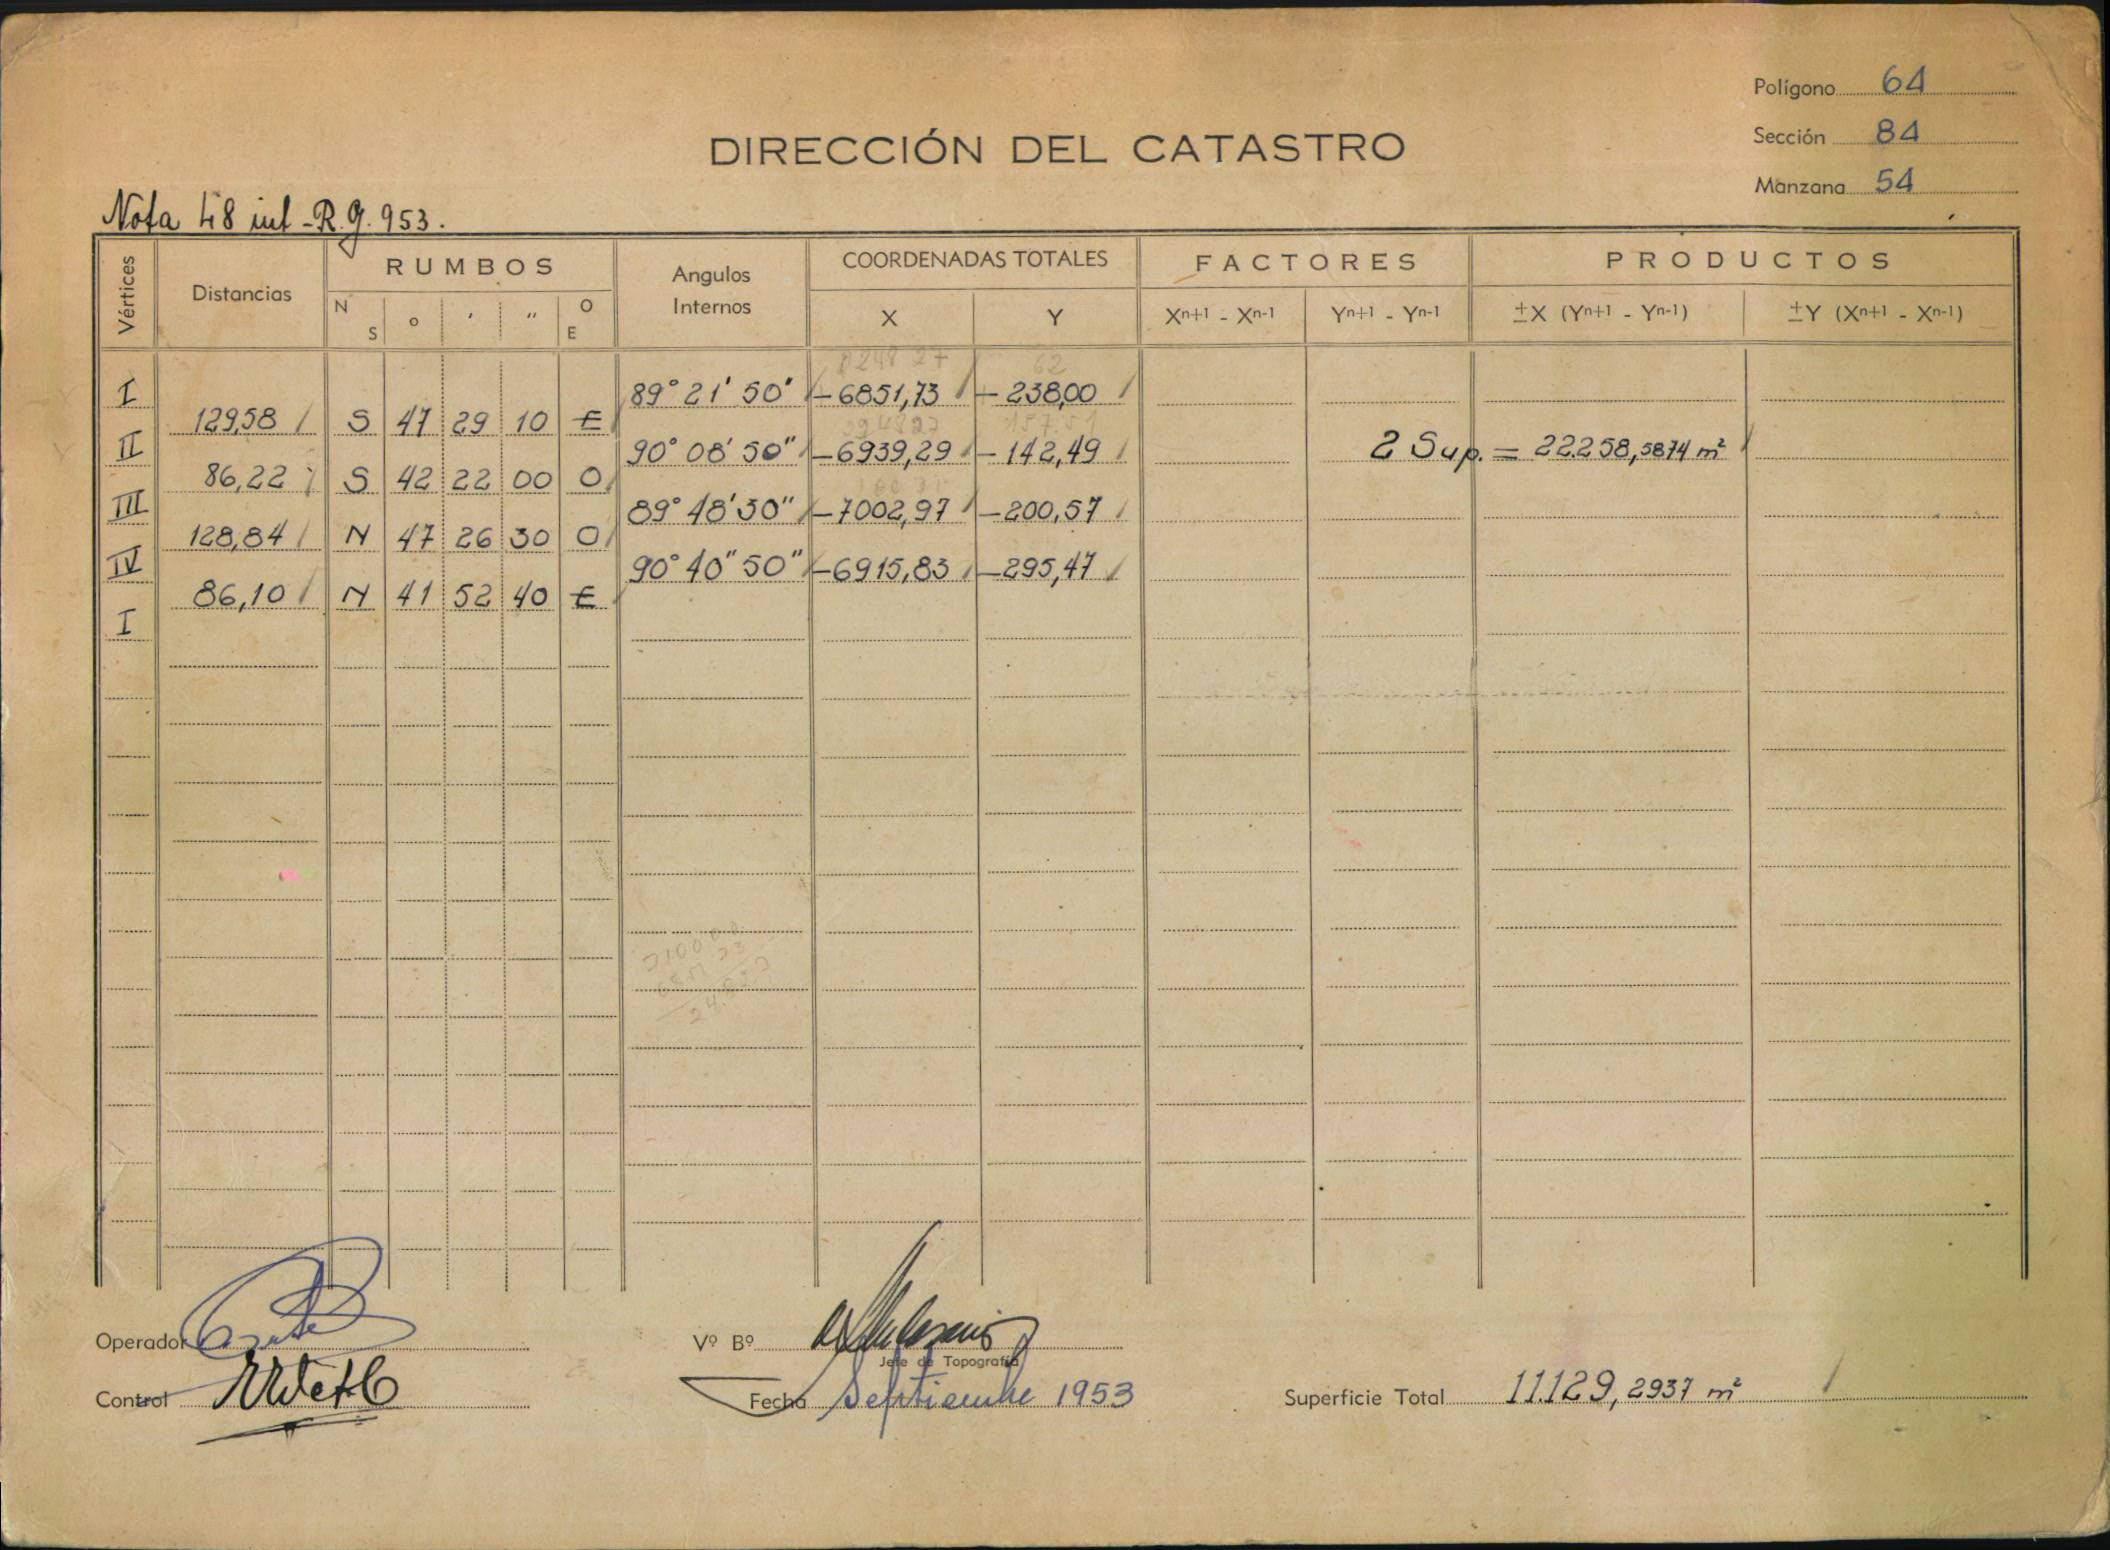 Polígono 64
DIRECCIÓN DEL CATASTRO
Sección 84
Manzana 54
Nota 48 int - R.G. 953.
Vértices Distancias RUMBOS Angulos Internos COORDENADAS TOTALES FACTORES PRODUCTOS
N S o ' " O E X Y Xn+1 - Xn-1 Yn+1 - Yn-1 ±X (Yn+1 - Yn-1) ±Y (Xn+1 - Xn-1)
I 89° 21' 50" -6851,73 -238,00
129,58 S 47 29 10 E
II 90° 08' 50" -6939,29 -142,49 2 Sup. = 22.258,5874 m²
86,22 S 42 22 00 O
III 89° 48' 30" -7002,97 -200,57
128,84 N 47 26 30 O
IV 90° 40" 50" -6915,83 -295,47
86,10 N 41 52 40 E
I
Operador
Vº Bº
Jefe de Topografía
Control
Fecha Septiembre 1953
Superficie Total 11.129,2937 m²